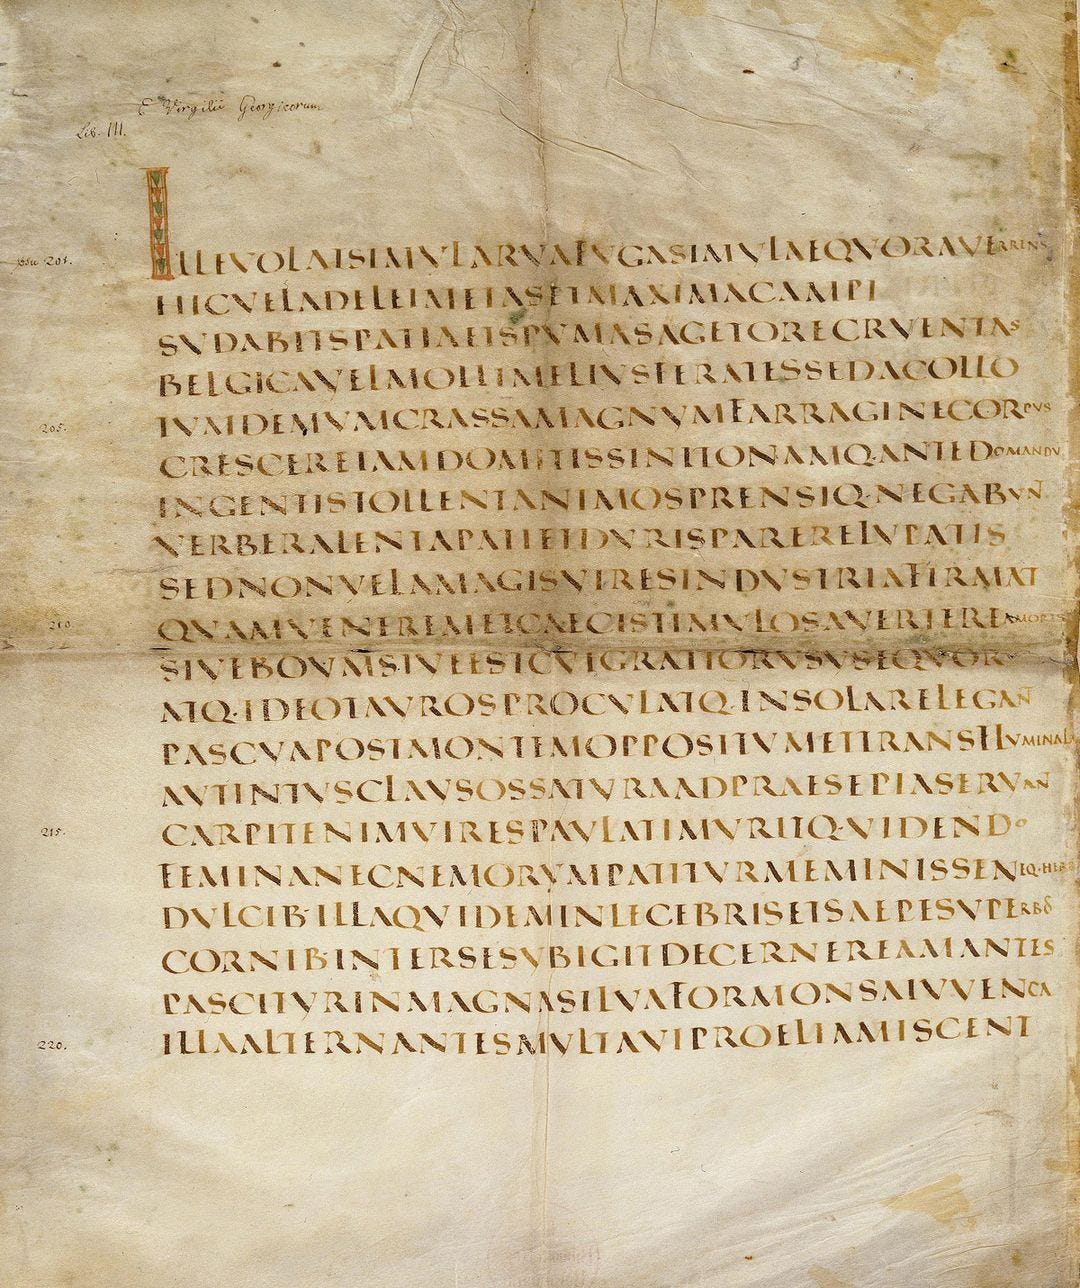 E Virgilii Georgicorum
Lib. III.
201. ILLEVOLATSIMVLARVAFVGASIMVLAEQVORAVERRENS
HICVELADELEIMETASETMAXIMACAMPI
SVDABITSPATIAETSPVMASAGETORECRVENTAS
BELGICAVELMOLLIMELIVSFERATESSEDACOLLO
205. TVMDEMVMCRASSAMAGNVMFARRAGINECORPVS
CRESCEREIAMDOMITISSINITONAMQ·ANTEDOMANDV
INGENTISTOLLENTANIMOSPRENSIQ·NEGABVN
VERBERALENTAPATIETDVRISPARERELVPATIS
SEDNONVELAMAGISVIRESINDVSTRIAFIRMAT
210. QVAMVENEREMETCAECISTIMVLOSAVERTEREAMORIS
SIVEBOVMSIVEESTCVIGRATIORVSVSEQVOR
ATQ·IDEOTAVROSPROCVLATQ·INSOLARELEGAN
PASCVAPOSTMONTEMOPPOSITVMETTRANSFLVMINALA
AVTINTVSCLAVSOSSATVRAADPRAESEPIASERVAN
215. CARPITENIMVIRESPAVLATIMVRITQ·VIDENDO
FEMINANECNEMORVMPATITVRMEMINISSENEQ·HERB
DVLCIB·ILLAQVIDEMINLECEBRISETSAEPESVPERBOS
CORNIB·INTERSESVBIGITDECERNEREAMANTES
PASCITVRINMAGNASILVAFORMONSAIVVENCA
220. ILLAALTERNANTESMVLTAVIPROELIAMISCENT